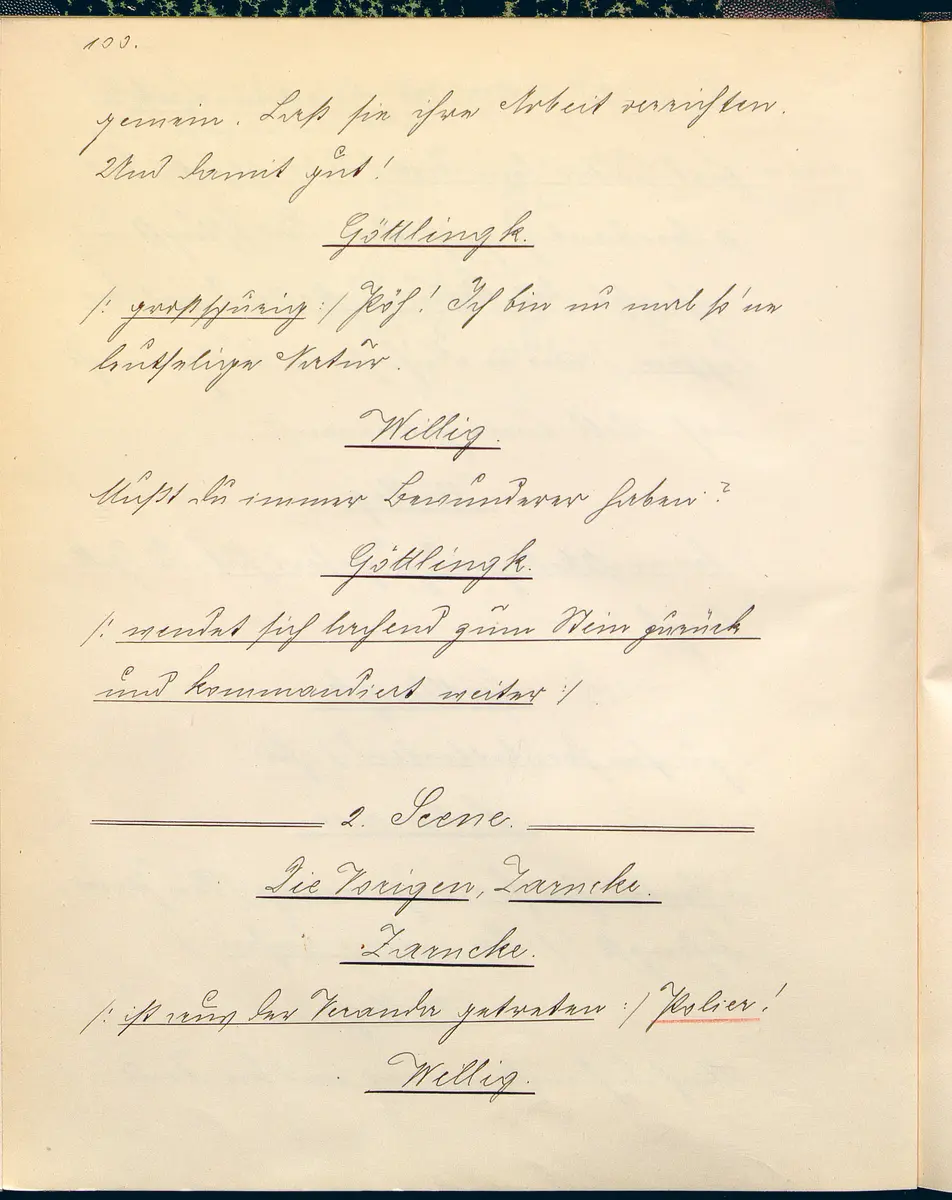 100.
gemein. Laß sie ihre Arbeit verrichten.
Und damit gut!
Göttlingk.
/: großspurig :/ Pöh! Ich bin nu mal so'ne
leutselige Natur.
Willig.
Mußt du immer Bewunderer haben?
Göttlingk.
/: wendet sich lachend zum Stein zurück
und kommandiert weiter :/
2. Scene.
Die Vorigen, Zarncke.
Zarncke.
/: ist aus der Veranda getreten :/ Polier!
Willig.